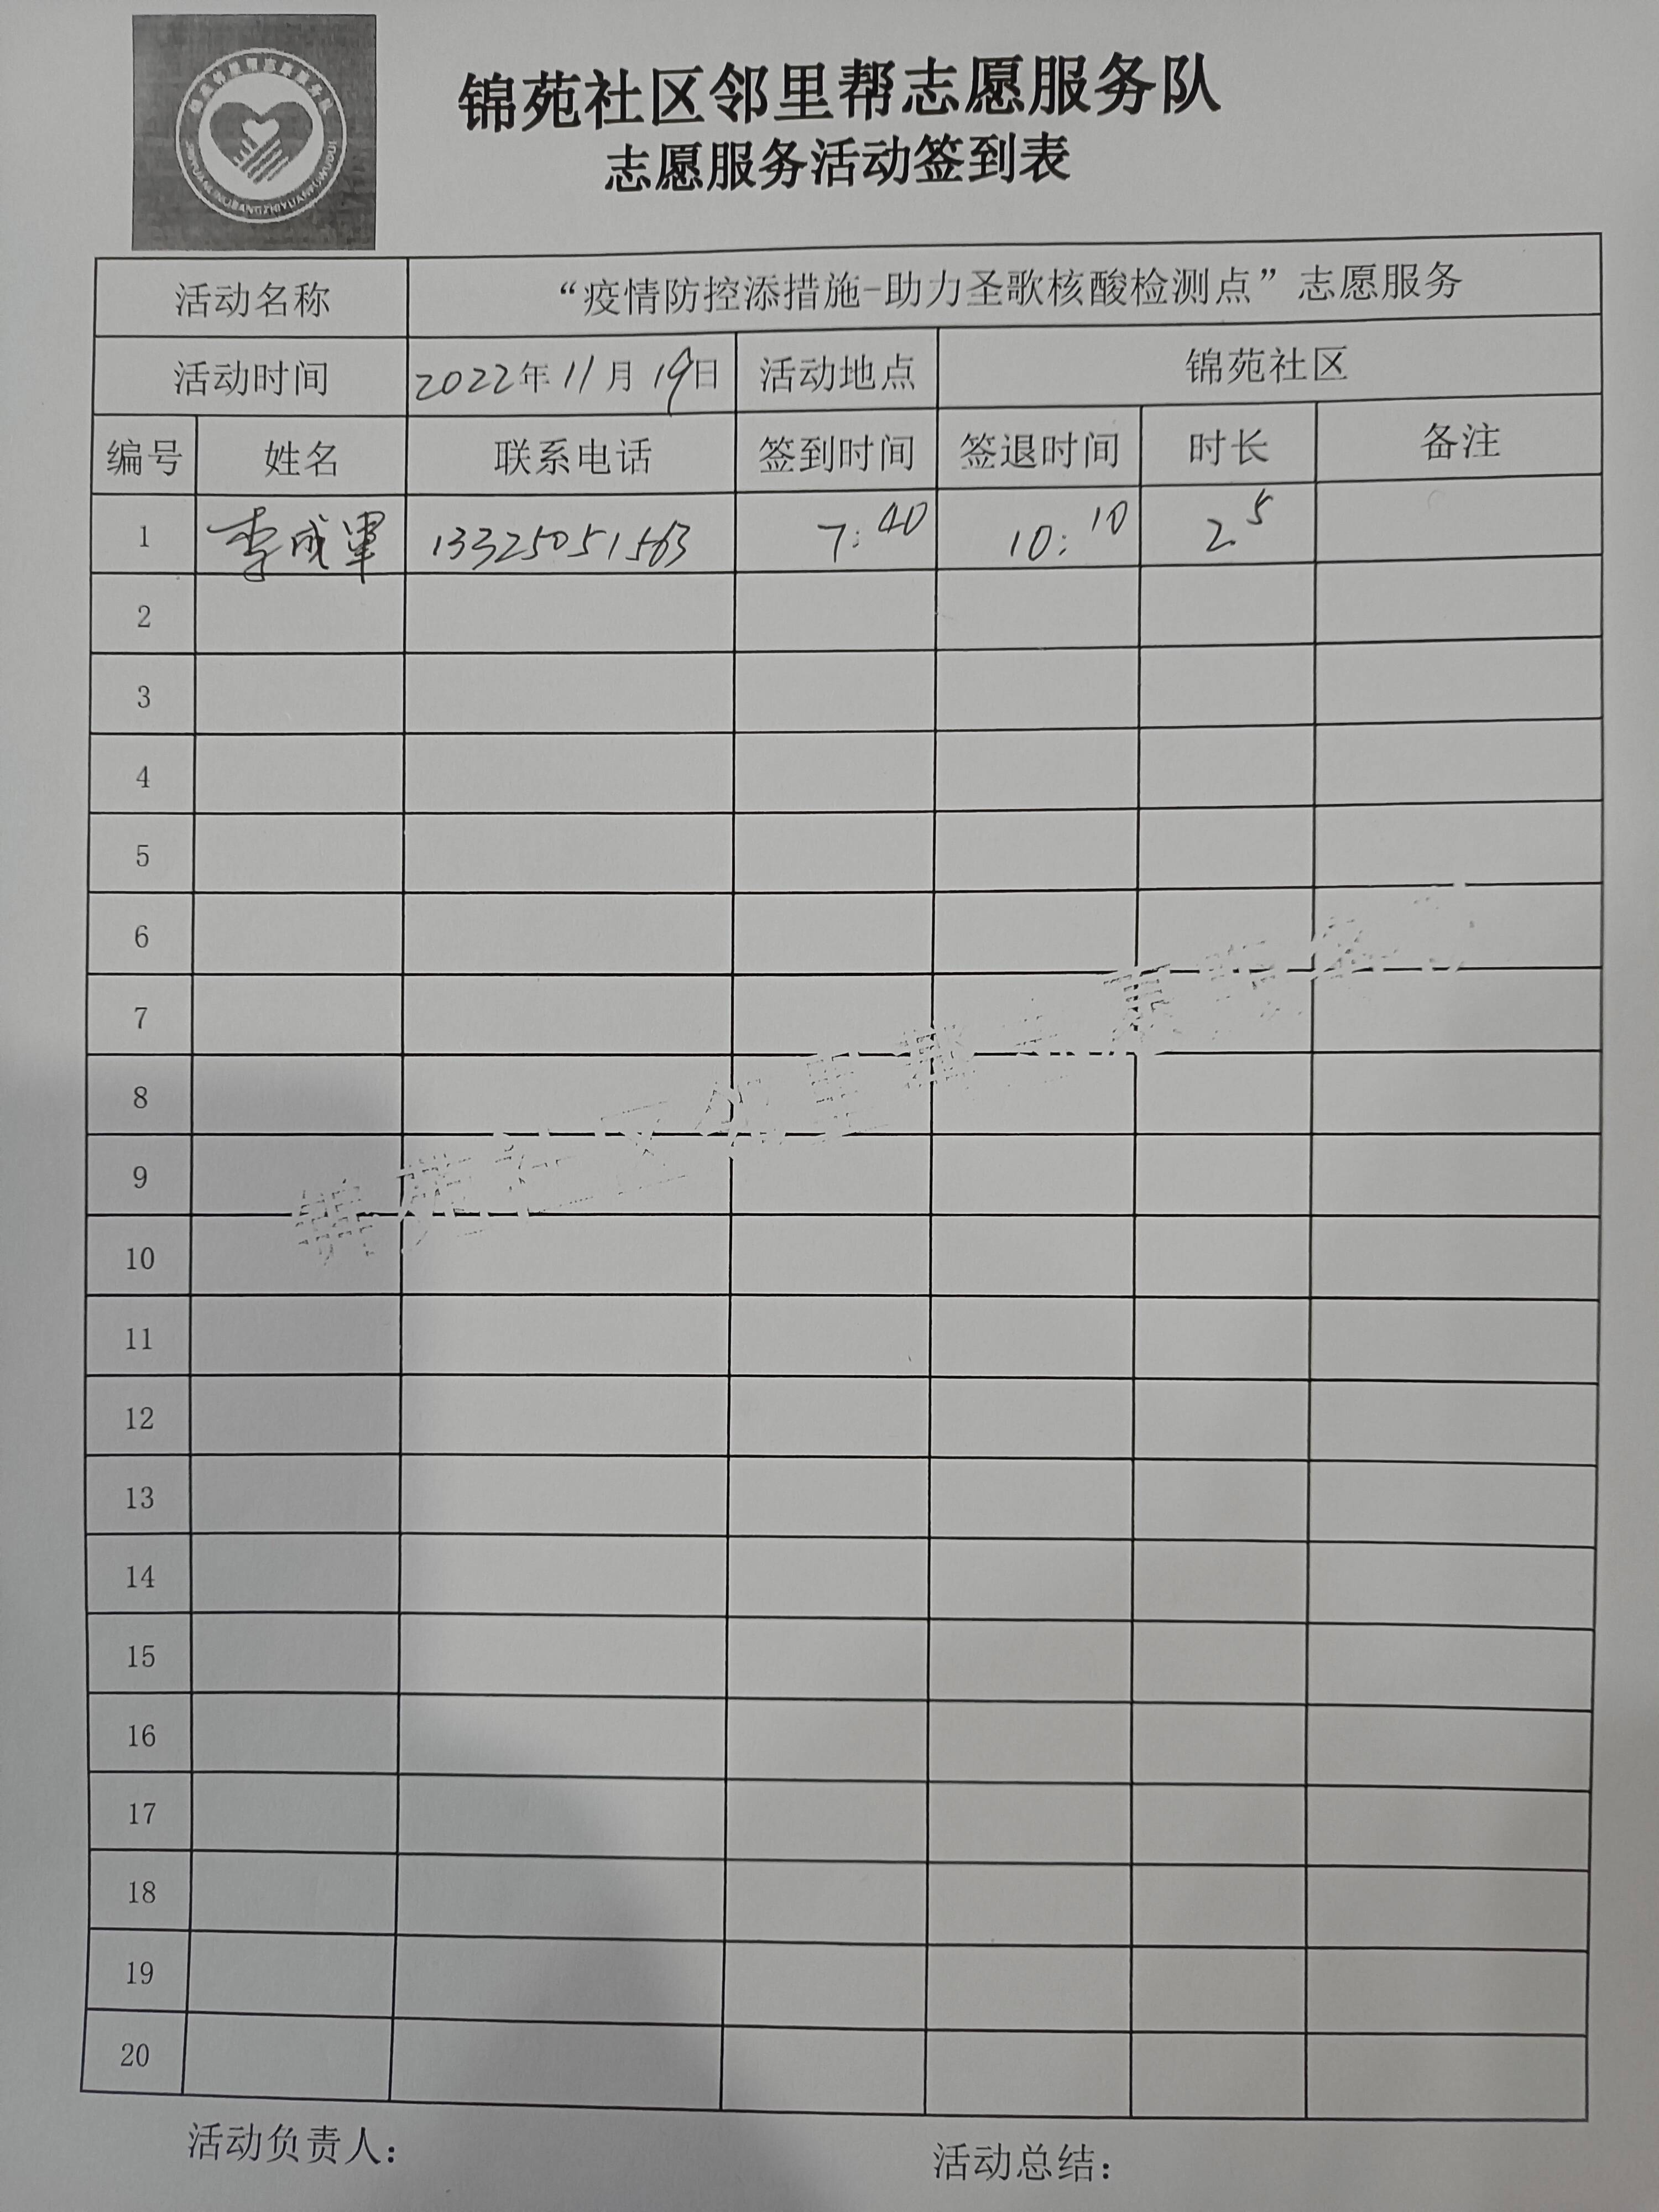 锦苑社区邻里帮志愿服务队
志愿服务活动签到表
活动名称 “疫情防控添措施-助力圣歌核酸检测点”志愿服务
活动时间 2022年11月19日 活动地点 锦苑社区
编号 姓名 联系电话 签到时间 签退时间 时长 备注
1 李成军 13325051563 7:40 10:10 2.5
2
3
4
5
6
7
8
9
10
11
12
13
14
15
16
17
18
19
20
锦苑社区邻里帮
活动负责人: 活动总结: